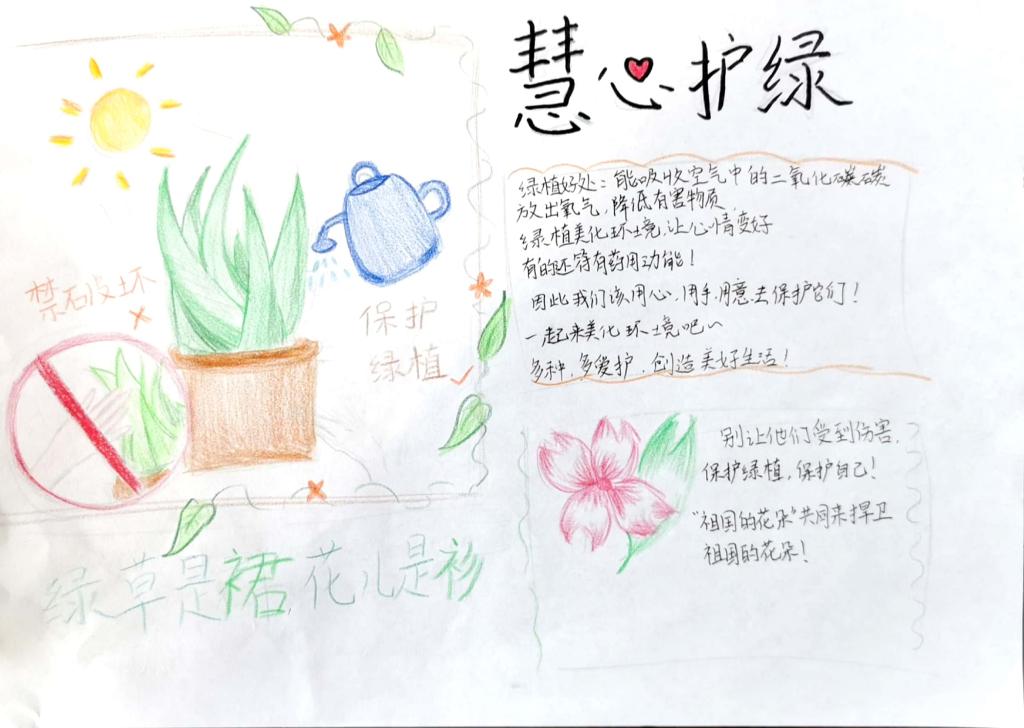 慧心护绿
绿植好处：能吸收空气中的二氧化碳
放出氧气，降低有害物质，
绿植美化环境，让心情变好
有的还符有药用功能！
因此我们该用心，用手，用意去保护它们！
一起来美化环境吧～
多种，多爱护，创造美好生活！
禁止破坏
保护
绿植
别让他们受到伤害，
保护绿植，保护自己！
“祖国的花朵”共同来捍卫
祖国的花朵！
绿草是裙，花儿是衫